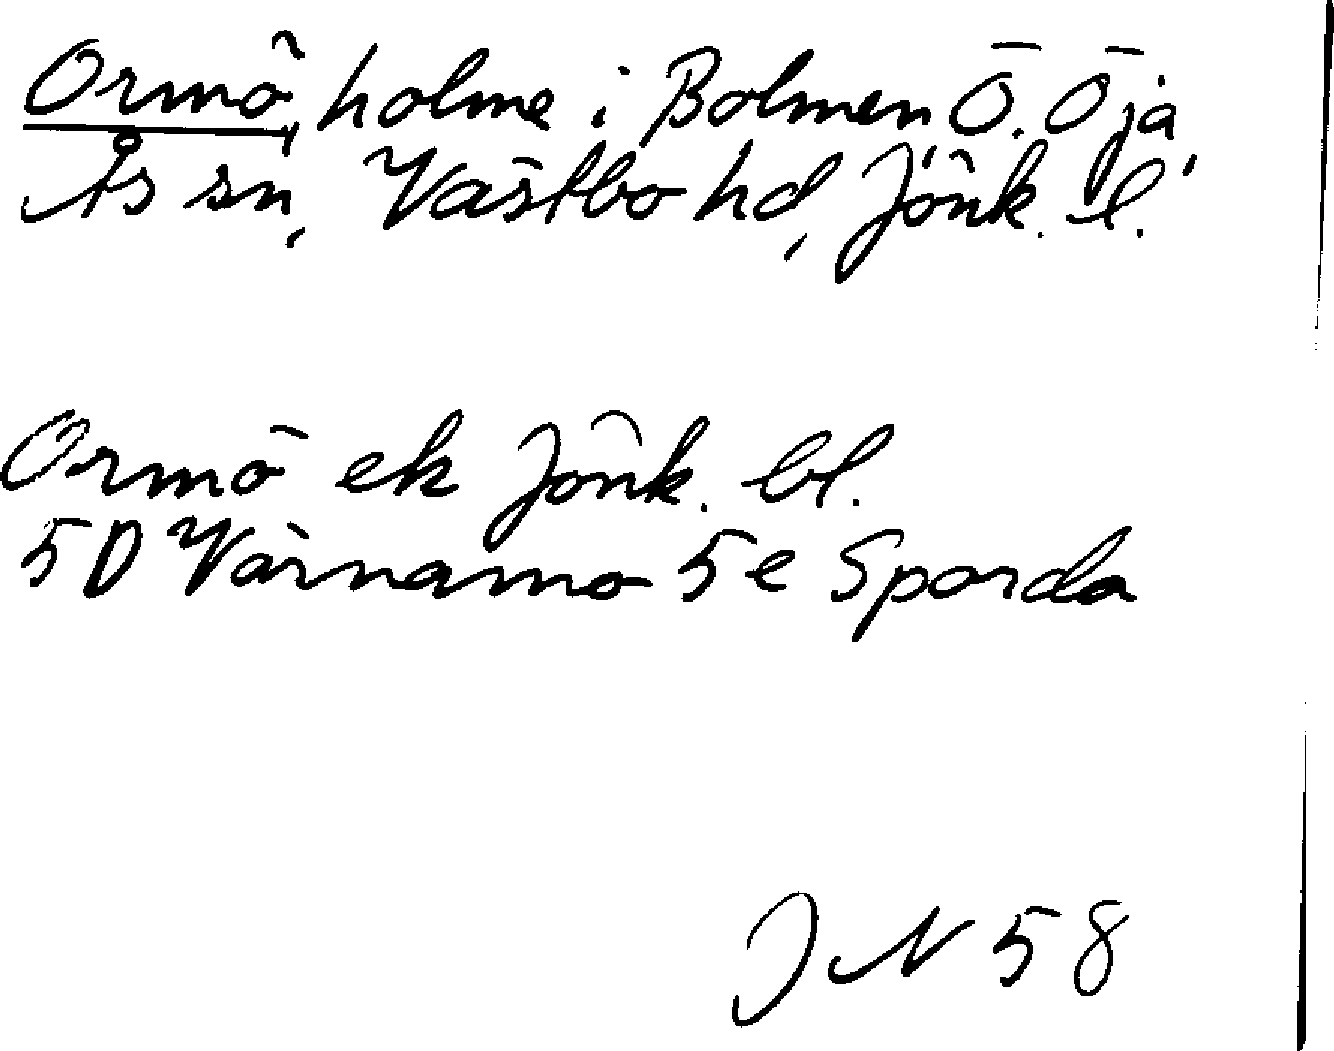 Ormö, holme i Bolmen Ö. Öja,
Ås sn, Västbo hd, Jönk. l.
Ormö ek Jönk. bl.
5D Värnamo 5e Sporda
JN 58